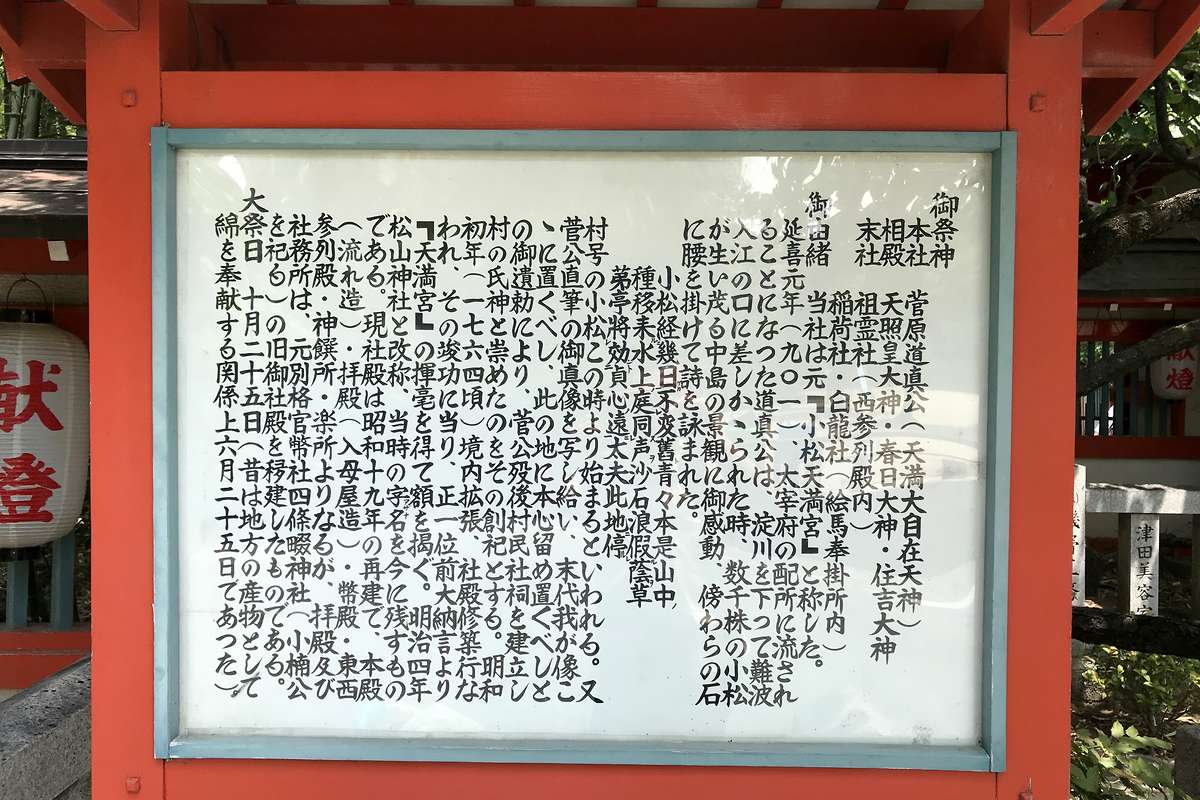 御祭神
本社 菅原道真公(天満大自在天神)
相殿 天照皇大神・春日大神・住吉大神
末社 祖霊社(西参列殿内)
稲荷社・白龍社(絵馬奉掛所内)
御由緒 当社は元『小松天満宮』と称した。
延喜元年(九〇一)、太宰府の配所に流され
ることになつた道真公は、淀川を下って難波
入江の口に差しかゝられた時、数千株の小松
が生い茂る中島の景観に御感動、傍わらの石
に腰を掛けて詩を詠まれた。
小松経幾日不変舊青々本是山中
種移来水上庭同声沙石浪假蔭草
苐亭將効貞心遠太夫此地停
村号の小松この時より始まるといわれる。又
菅公直筆の御真像を写し給い、末代我が像こ
ゝに置くべし、此の地に本心留め置くべしと
の御遺勅により、菅公歿後村民社祠を建立し
村の氏神と崇めたのをその創祀とする。明和
初年(一七六四頃)境内拡張、社殿修築行な
われ、その竣功に当り、正一位前大納言より
『天満宮』の揮毫を得て額を掲ぐ。明治四年
松山神社と改称、当時の字名を今に残すもの
である。現社殿は昭和十九年の再建で、本殿
(流れ造)・拝殿(入母屋造)・幣殿・東西
参列殿・神饌所・楽所よりなるが、拝殿及び
社務所は、元別格官幣社四條畷神社(小楠公
を祀る)の旧御社殿を移建したものである。
大祭日 十月二十五日(昔は地方の産物として
綿を奉献する関係上六月二十五日であつた)。
献燈
献
津田美容室